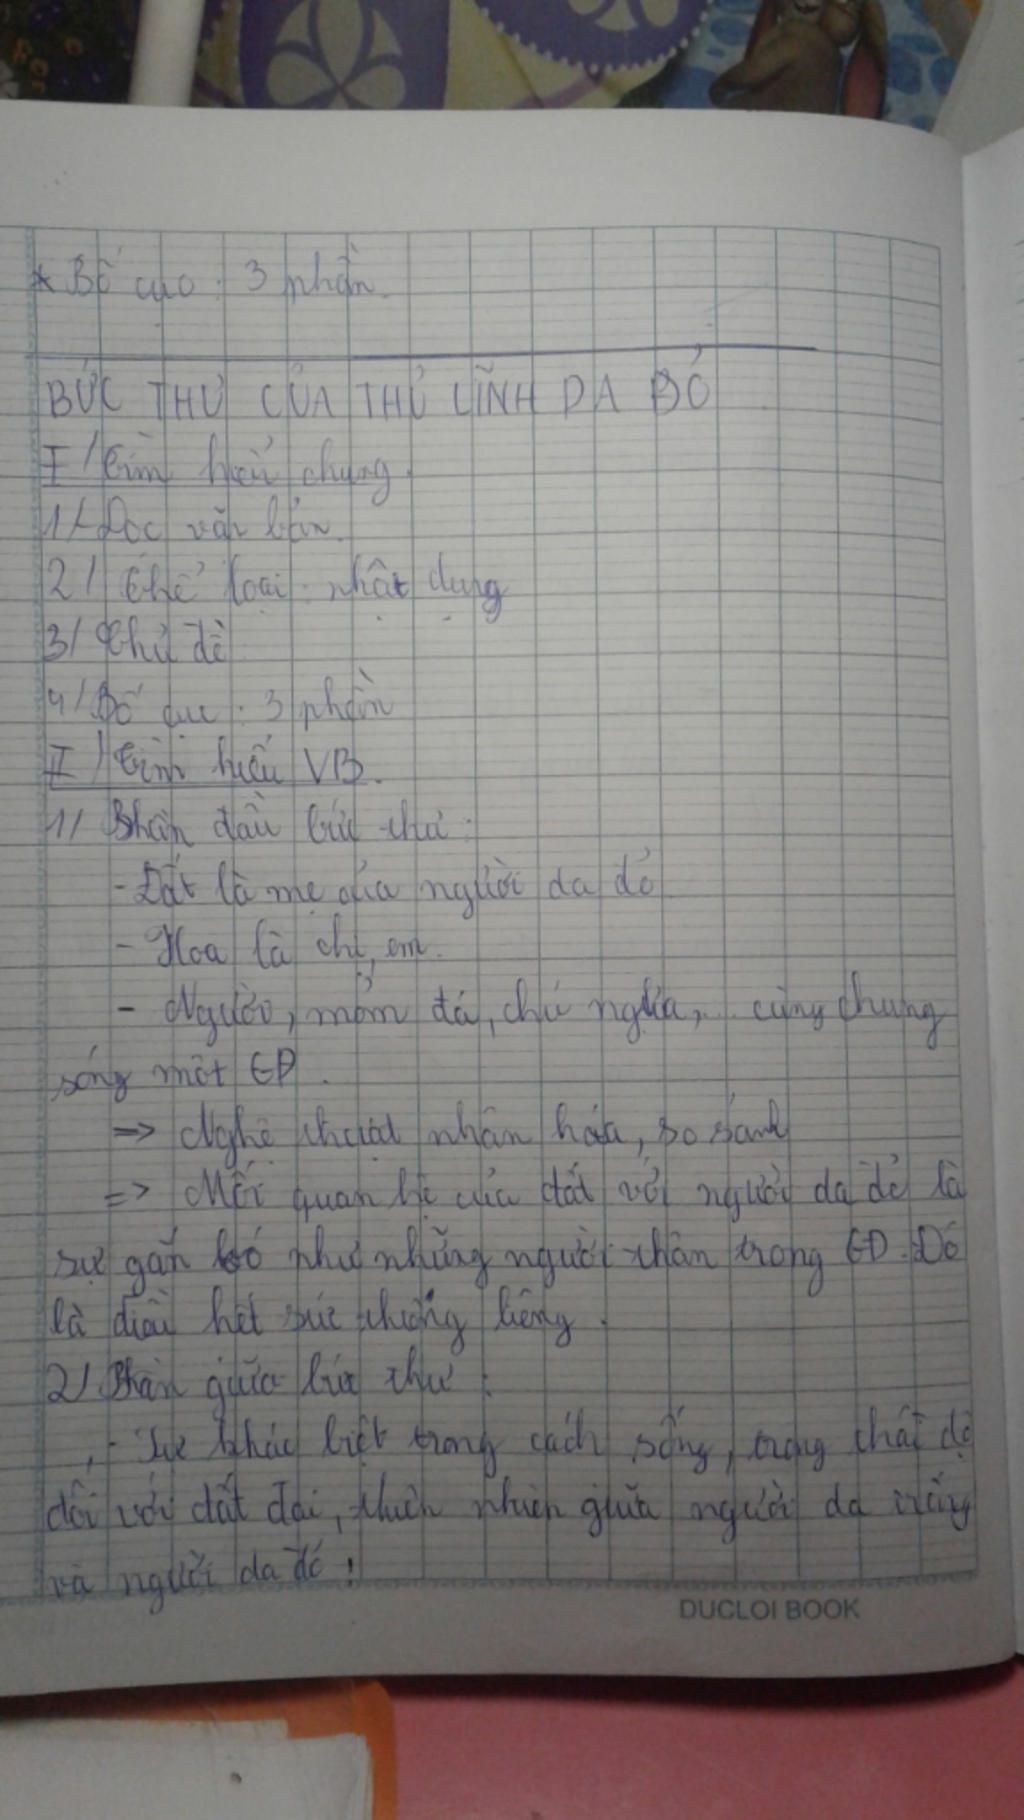 * Bố cục : 3 phần.
BỨC THƯ CỦA THỦ LĨNH DA ĐỎ
I/ Tìm hiểu chung
1/ Đọc văn bản.
2/ Thể loại : nhật dụng
3/ Chủ đề
4/ Bố cục : 3 phần
II/ Tìm hiểu VB.
1/ Phần đầu bức thư :
- Đất là mẹ của người da đỏ
- Hoa là chị, em.
- Người, mỏm đá, chú ngựa,... cùng chung
sống một GĐ.
=> Nghệ thuật nhân hóa, so sánh
=> Mối quan hệ của đất với người da đỏ là
sự gắn bó như những người thân trong GĐ. Đó
là điều hết sức thiêng liêng.
2/ Phần giữa bức thư :
- Sự khác biệt trong cách sống, trong thái độ
đối với đất đai, thiên nhiên giữa người da trắng
và người da đỏ !
DUCLOI BOOK